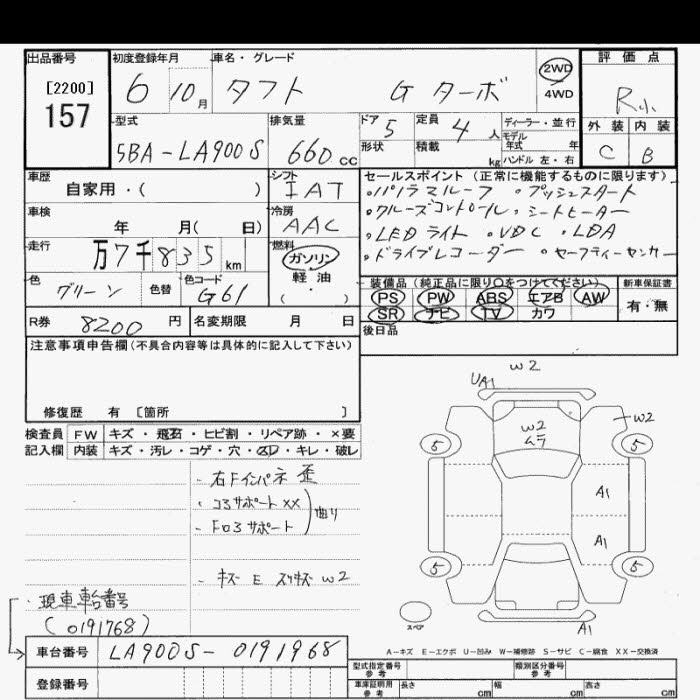 出品番号
[2200]
157
初度登録年月
6 10月
車名・グレード
タフト Gターボ
2WD
4WD
評価点
R小
外装 内装
C B
型式
5BA-LA900S
排気量
660cc
ドア 5
形状
定員 4人
積載 kg
ディーラー・並行
モデル
年式 年
ハンドル 左・右
車歴
自家用・( )
シフト
IAT
セールスポイント (正常に機能するものに限ります)
・パノラマルーフ ・プッシュスタート
・クルーズコントロール ・シートヒーター
・LEDライト ・VDC ・LDA
・ドライブレコーダー ・セーフティーセンサー
車検
年 月( 日)
冷房
AAC
走行
万7千835km
燃料
ガソリン
軽油
(・)
色
グリーン
色替
色コード
G61
装備品 (純正品に限り○をつけてください)
PS PW ABS エアB AW
SR ナビ TV カワ
新車保証書
有・無
後日品
R券 8200円
名変期限 月 日
注意事項申告欄(不具合内容等は具体的に記入して下さい)
修復歴 有 [箇所 ]
検査員 FW キズ・飛石・ヒビ割・リペア跡・×要
記入欄 内装 キズ・汚レ・コゲ・穴・スレ・キレ・破レ
- 右Fインパネ 歪
- コアサポート XX
- Fロアサポート
曲り
- キズ E スリキズ W2
現車車台番号
(0191768)
車台番号 LA900S-0191968
登録番号
W2
UA1
W2
ムラ
W2
5 5
A1
A1
5 5
スペア
A1
A-キズ E-エクボ U-凹み W-補修跡 S-サビ C-腐食 XX-交換済
型式指定番号
参考
類別区分番号
参考
車庫証明用
参考
長さ cm
幅 cm
高さ cm